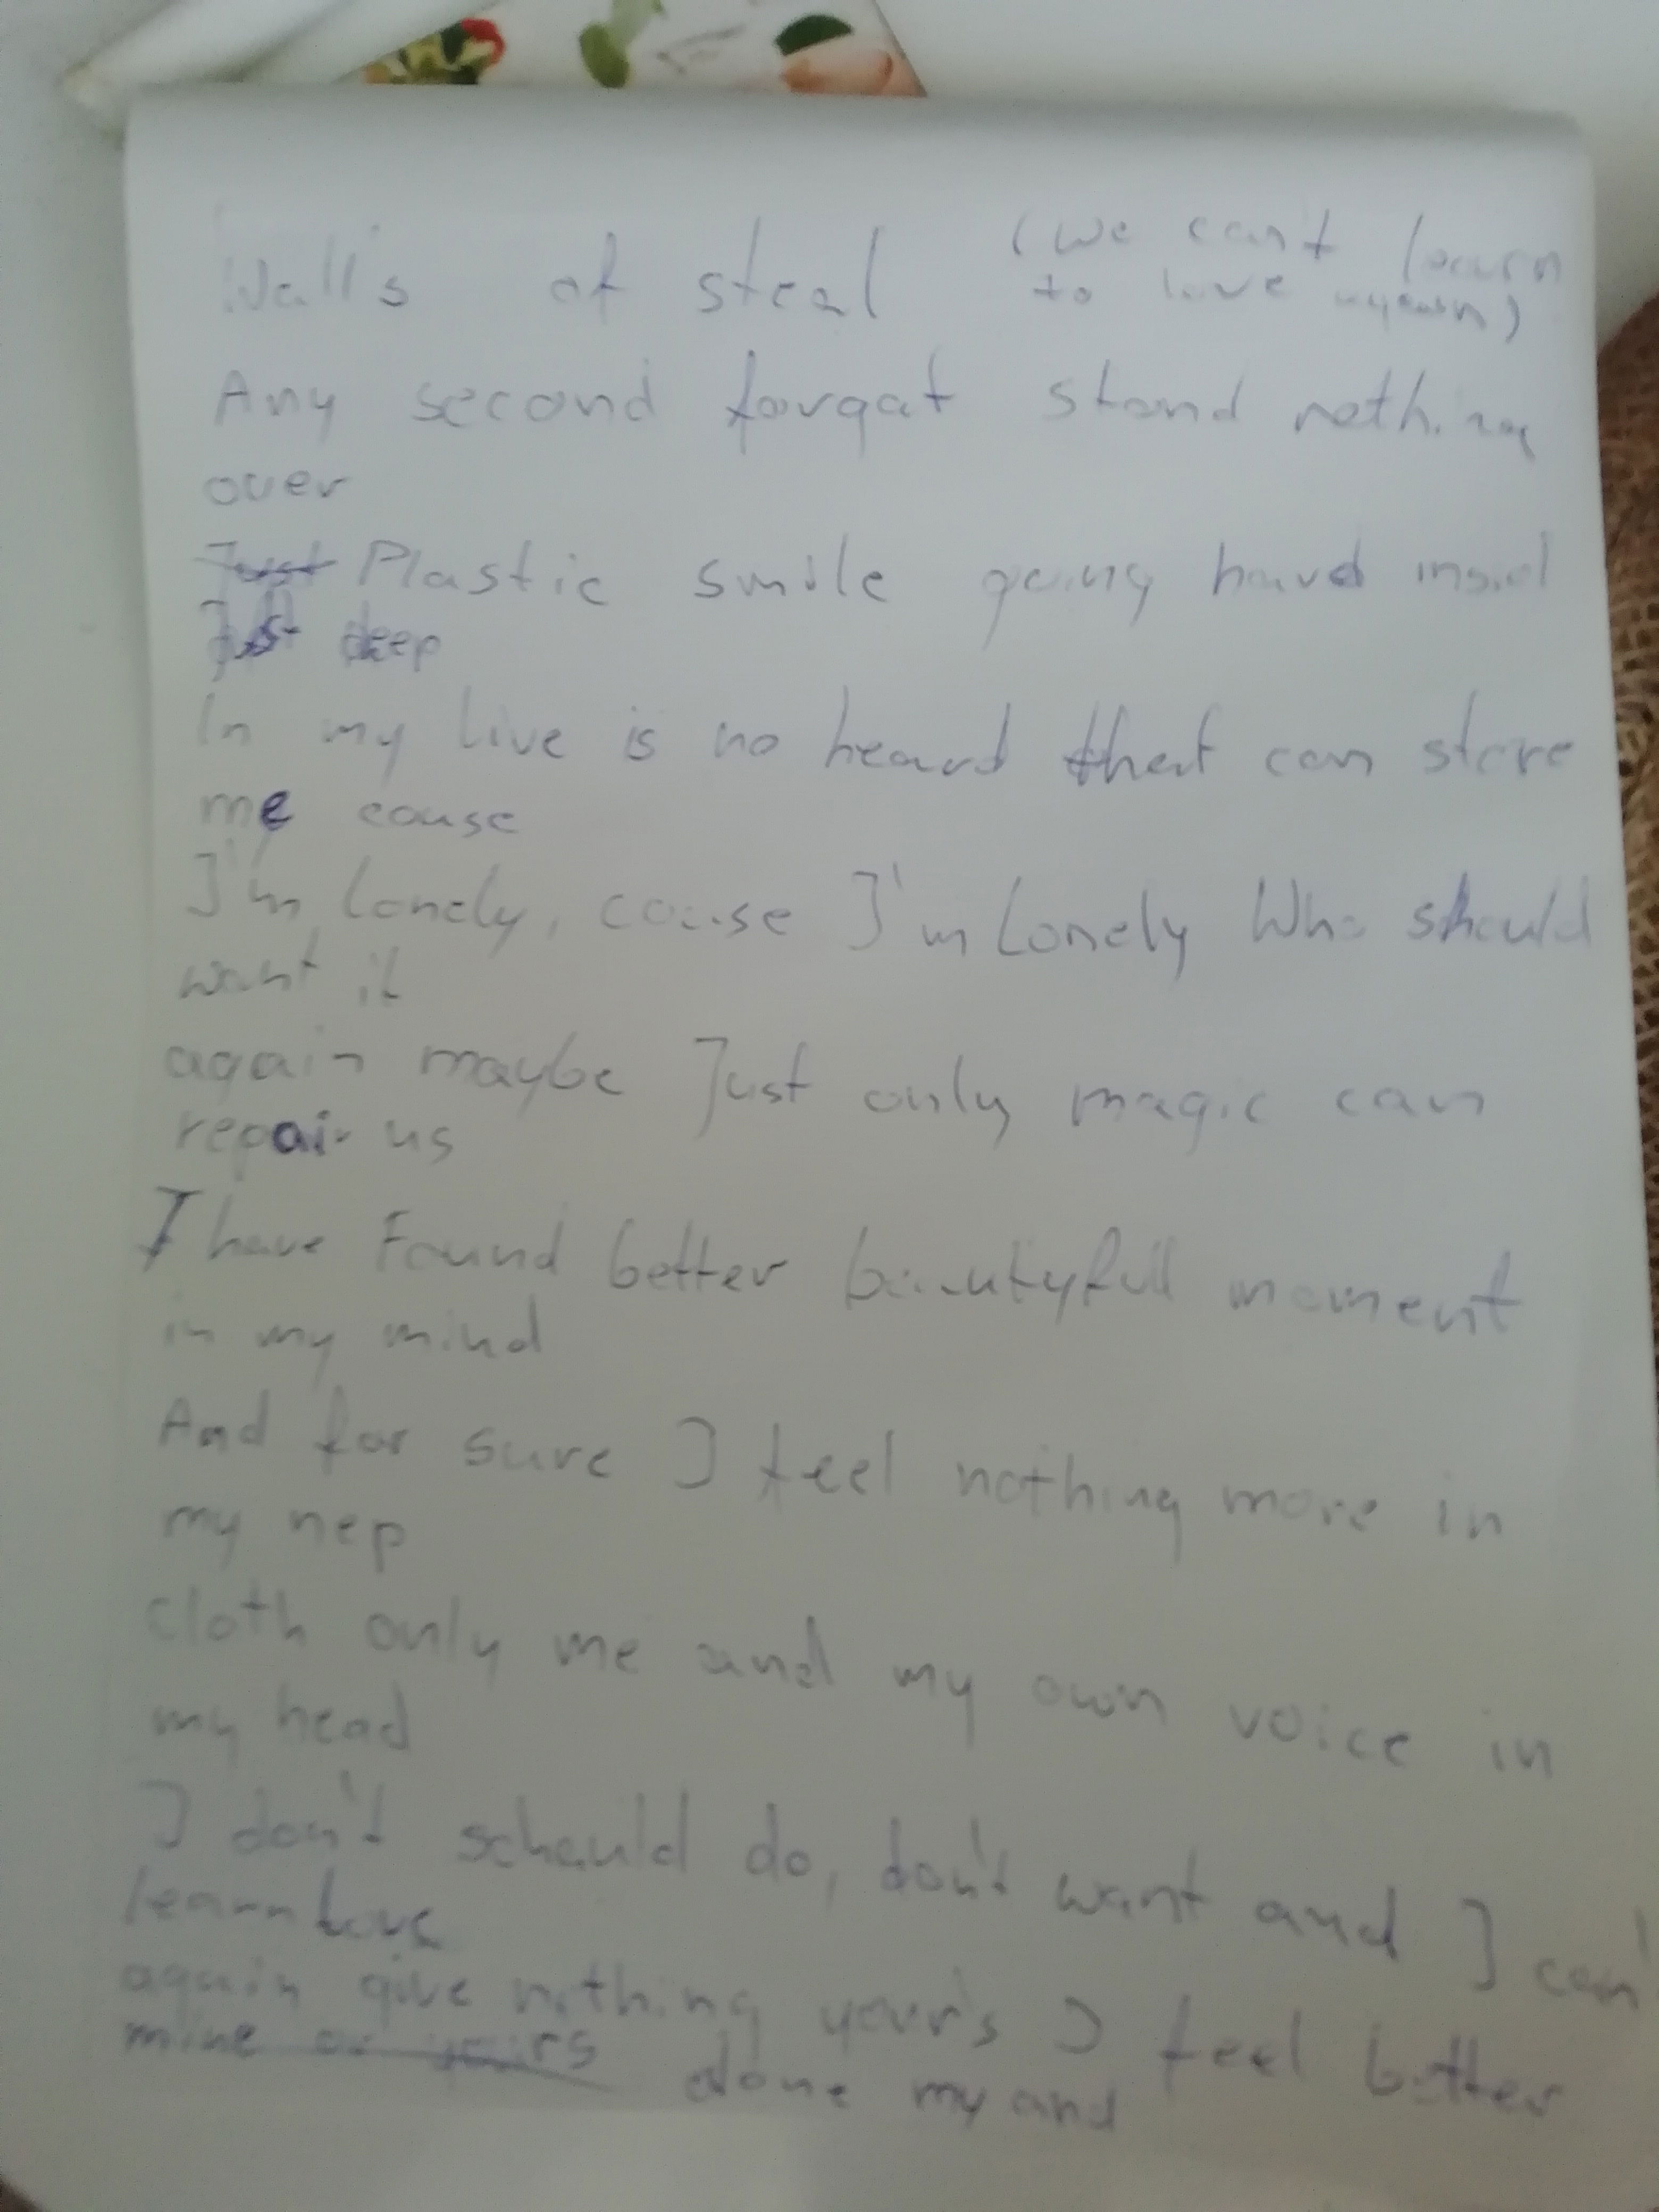 Wall's of steal (we can't learn
to love again)
Any second forgat stand nothing
over
Just Plastic smile going hard insid
Just deep
In my live is no heard that can store
me cause
I'm Lonely, cause I'm Lonely Who should
want it
again maybe Just only magic can
repair us
I have Found better beautyfull moment
in my mind
And for sure I feel nothing more in
my nep
cloth only me and my own voice in
my head
I don't schould do, don't want and I can'
learn Love
again give nothing your's I feel better
mine or yours alone my and